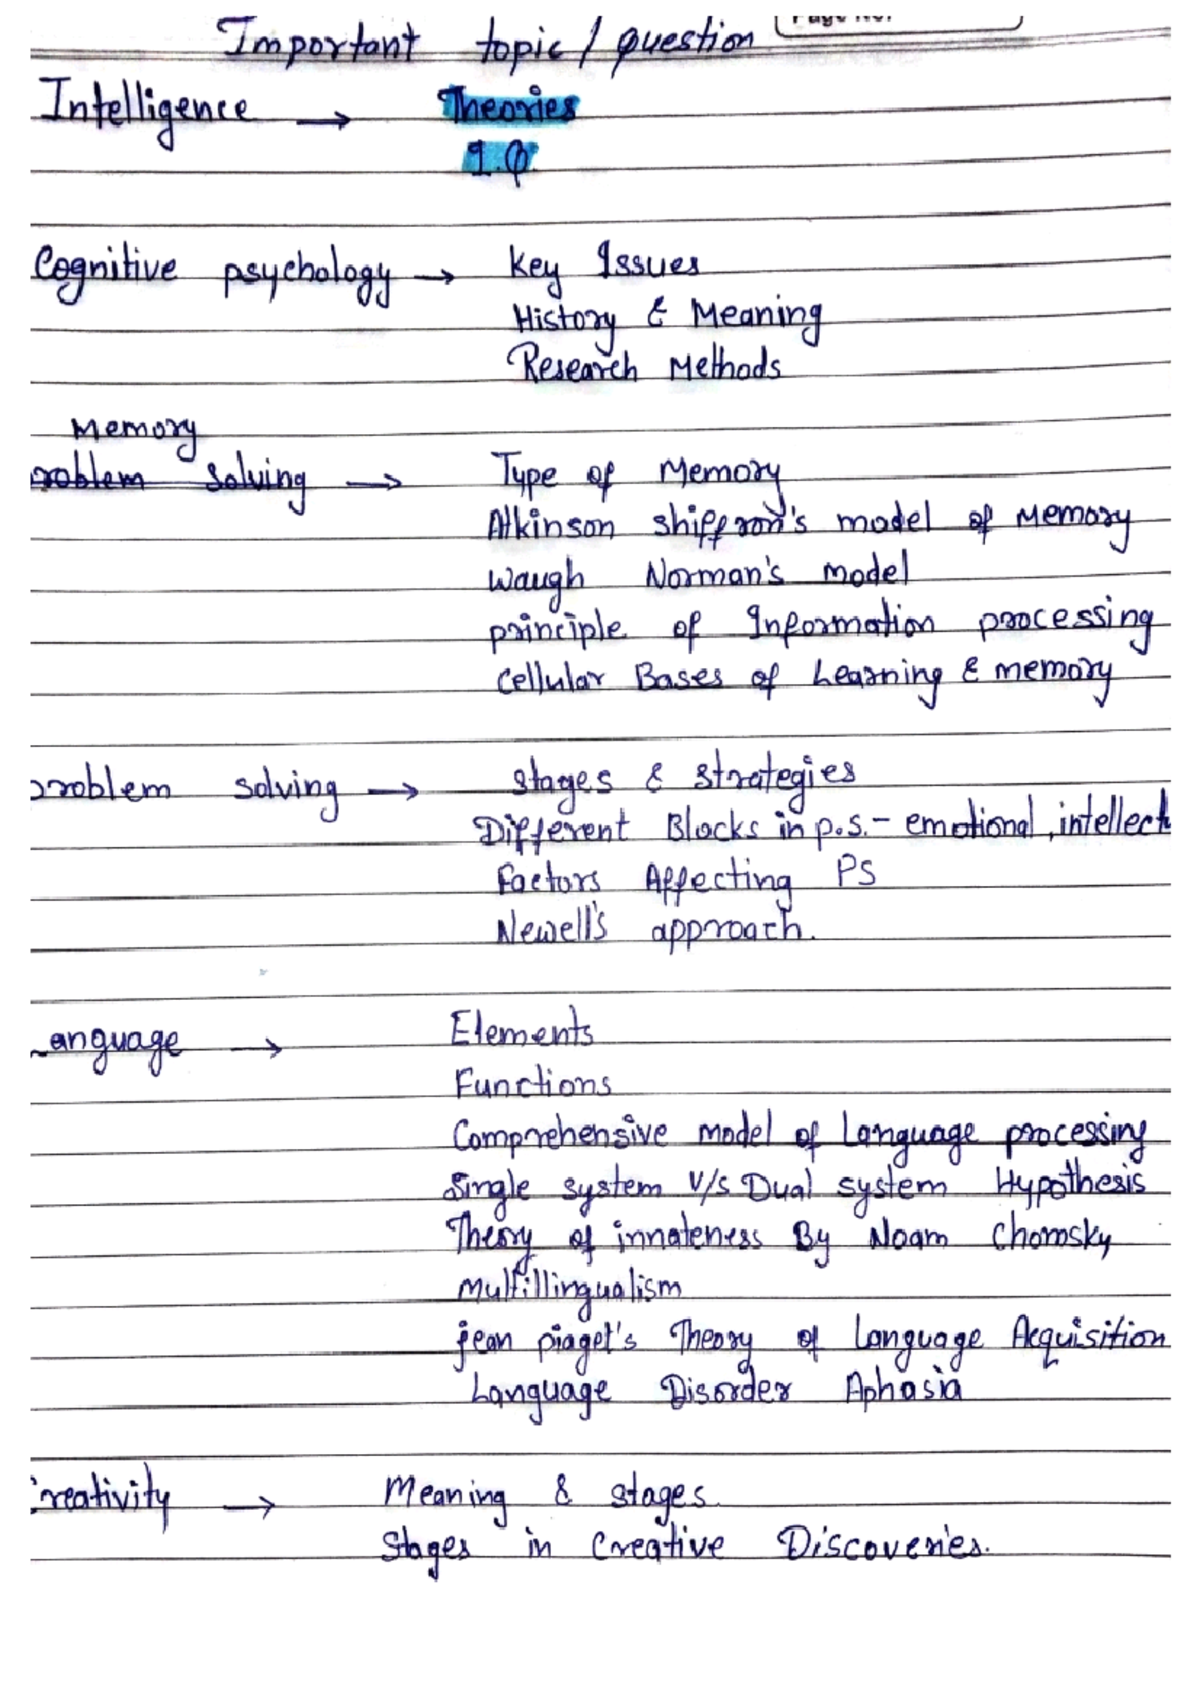 Important topic / question
Intelligence → Theories
I.Q.
Cognitive psychology → Key Issues
History & Meaning
Research Methods
Memory
roblem solving → Type of Memory
Atkinson shiffron's model of Memory
Waugh Norman's model
principle of Information processing
Cellular Bases of Learning & memory
problem solving → Stages & strategies
Different Blocks in p.s. - emotional, intellect
Factors Affecting PS
Newell's approach.
Language → Elements
Functions
Comprehensive model of Language processing
Single system V/s Dual system Hypothesis
Theory of innateness By Noam Chomsky
Multillingualism
jean piaget's Theory of Language Acquisition
Language Disorder Aphasia
Creativity → Meaning & stages.
Stages in Creative Discoveries.